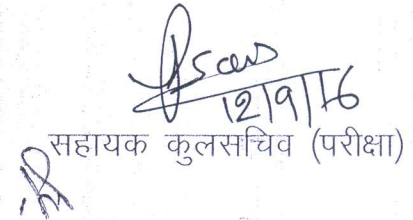 12/9/16
सहायक कुलसचिव (परीक्षा)